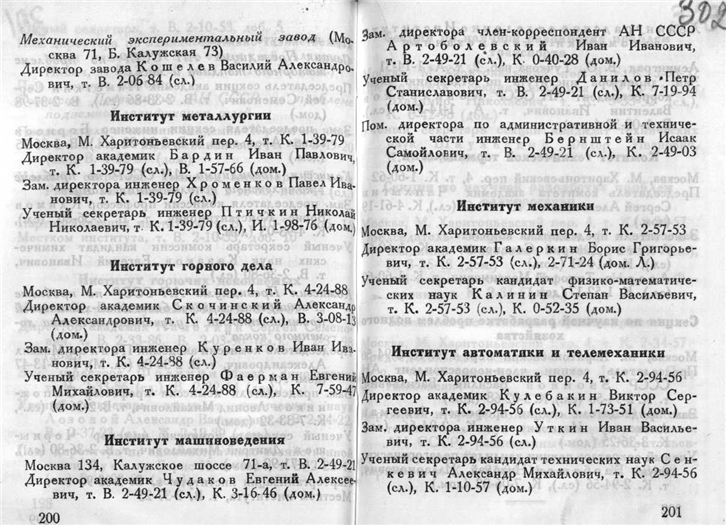 Механический экспериментальный завод (Мо-
сква 71, Б. Калужская 73)
Директор завода Кошелев Василий Александро-
вич, т. В. 2-06 84 (сл.)
Институт металлургии
Москва, М. Харитоньевский пер. 4, т. К. 1-39-79
Директор академик Бардин Иван Павлович,
т. К. 1-39-79 (сл.), В. 1-57-66 (дом.)
Зам. директора инженер Хроменков Павел Ива-
нович, т. К. 1-39-79 (сл.)
Ученый секретарь инженер Птичкин Николай
Николаевич, т. К. 1-39-79 (сл.), И. 1-98-76 (дом.)
Институт горного дела
Москва, М. Харитоньевский пер. 4, т. К. 4-24-88
Директор академик Скочинский Александр
Александрович, т. К. 4-24-88 (сл.), В. 3-08-13
(дом.)
Зам. директора инженер Куренков Иван Ива-
нович, т. К. 4-24-88 (сл.)
Ученый секретарь инженер Фаерман Евгений
Михайлович, т. К. 4-24-88 (сл.), К. 7-59-47
(дом.)
Институт машиноведения
Москва 134, Калужское шоссе 71-а, т. В. 2-49-21
Директор академик Чудаков Евгений Алексее-
вич, т. В. 2-49-21 (сл.), К. 3-16-46 (дом.)
200
Зам. директора член-корреспондент АН СССР
Артоболевский Иван Иванович,
т. В. 2-49-21 (сл.), К. 0-40-28 (дом.)
Ученый секретарь инженер Данилов Петр
Станиславович, т. В. 2-49-21 (сл.), К. 7-19-94
(дом.)
Пом. директора по административной и техниче-
ской части инженер Бернштейн Исаак
Самойлович, т. В. 2-49-21 (сл.), К. 2-49-03
(дом.)
Институт механики
Москва, М. Харитоньевский пер. 4, т. К. 2-57-53
Директор академик Галеркин Борис Григорье-
вич, т. К. 2-57-53 (сл.), 2-71-24 (дом. Л.)
Ученый секретарь кандидат физико-математиче-
ских наук Калинин Степан Васильевич,
т. К. 2-57-53 (сл.), К. 0-52-35 (дом.)
Институт автоматики и телемеханики
Москва, М. Харитоньевский пер. 4, т. К. 2-94-56
Директор академик Кулебакин Виктор Сер-
геевич, т. К. 2-94-56 (сл.), К. 1-73-51 (дом.)
Зам. директора инженер Уткин Иван Василье-
вич, т. К. 2-94-56 (сл.)
Ученый секретарь кандидат технических наук Сен-
кевич Александр Михайлович, т. К. 2-94-56
(сл.), К. 1-10-57 (дом.)
201